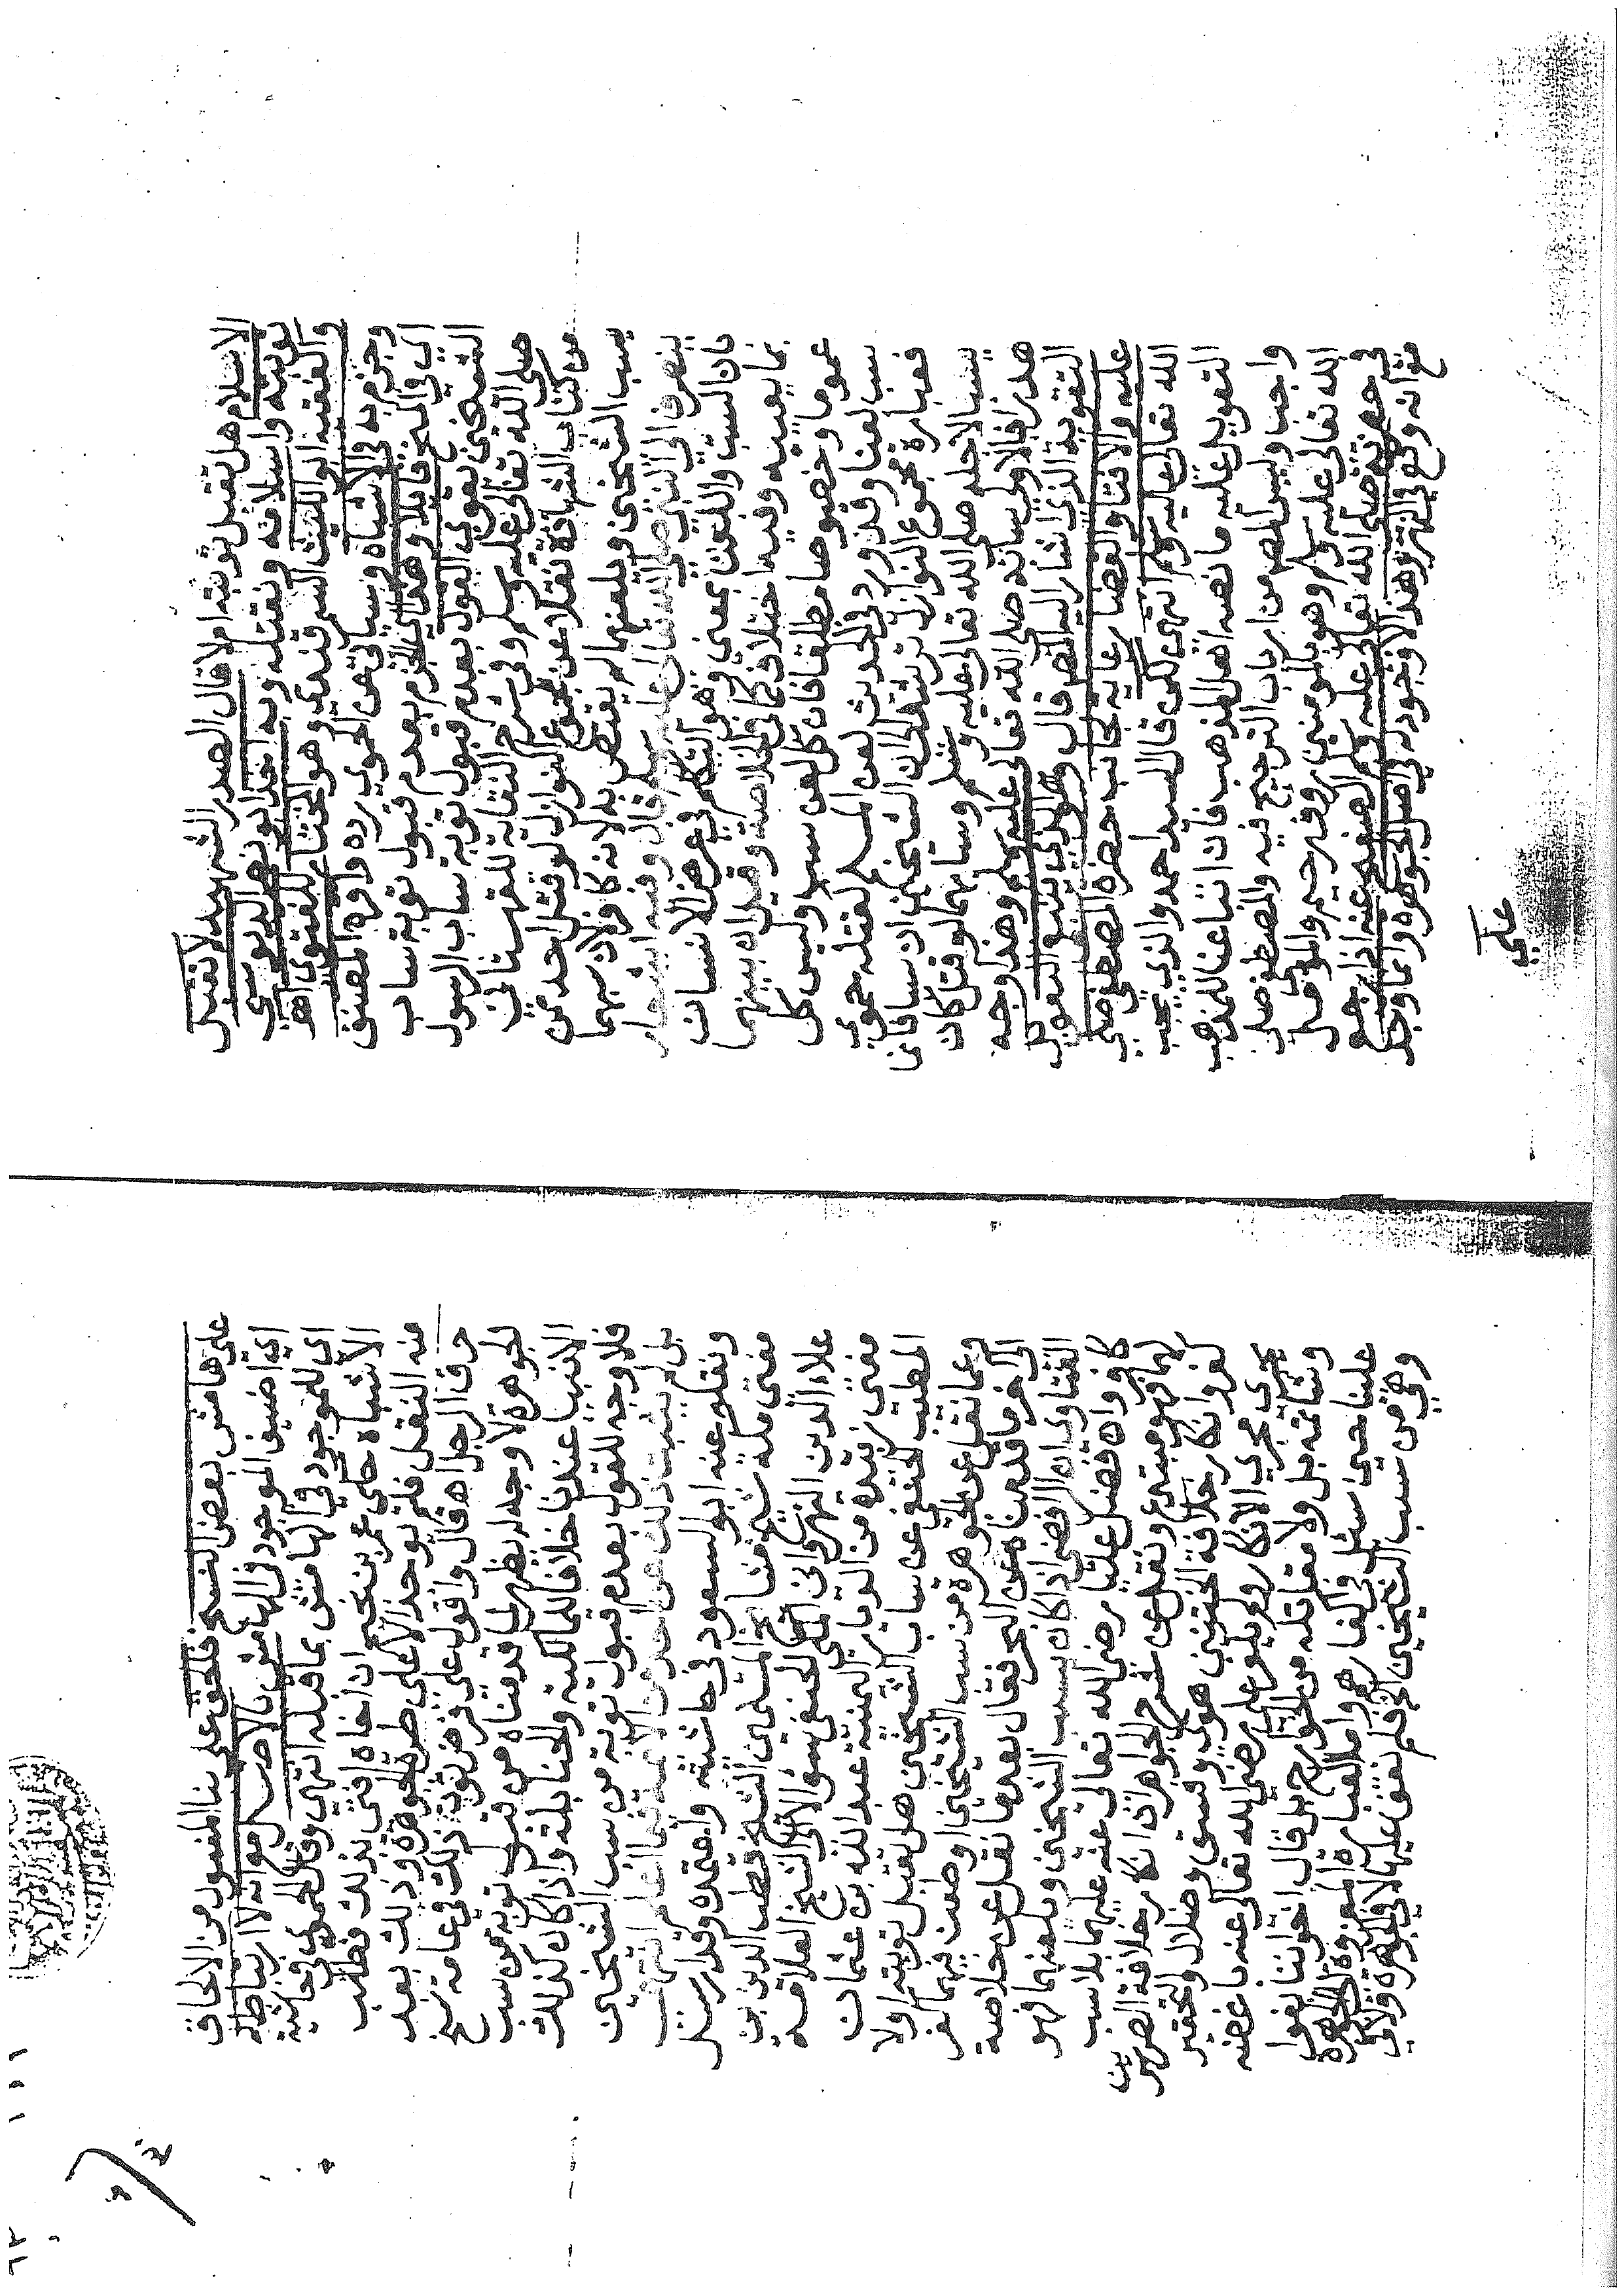 الاسلام هل تقبل توبته ام لا قال الصدر الشهيد لا تقبل
توبته واسلامه ونقتله وبه اخذ ابو نصر الدبوسي
والفقيه ابو الليث السمرقندي وهو المختار للفتوى اهـ
وجزم به في الاشباه وسياتي عن الحموي رده واقره المصنف
اي في المنح قايلا وهذا اي الجزم بعدم قبول توبة ساب
الشيخين يقوي القول بعدم قبول توبة ساب الرسول
صلى الله تعالى عليه وسلم وفي شرح النقاية للقهستاني
من كتاب الشهادة نقلا عن مجموع النوازل لو قتل احد من
يسب الشيخين ويلعنهما لم يقتص به لانه كافر لان سبهما
ينصرف الي النبي صلى الله تعالى عليه وسلم قال وفيه اشعار
بان السب واللعن بمعني وهو التكلم في عرض الانسان
بما يعيبه وفيه اختلاف كما في الخلاصة وقيل ان بينهما
عموما وخصوصا مطلقا فان كل لعن سب وليس كل
سب لعنا وقد ورد في الحديث لعن المسلم كقتله حموي
فعبارة مجموع النوازل ترشد الى ان الشيخين
يسبا لاجله صلى الله تعالى عليه وسلم وسابهما لو قتل كان
هدرا فبالاولى سابه صلى الله تعالى عليه وسلم وهذا وجه
التقوية الذي اشار اليه المص قال وهو الذي ينبغي التعويل
عليه والافتا والقضا رعاية لجانب حضرة المصطفى صلى
الله تعالى عليه وسلم انتهى لكن قال السيد احمد والذي يجب
التعويل عليه ما نصه اهل المذهب فان اتباعنا للمذهب
واجب وليس المص من ارباب الترجيح فيه والمصطفى صلى
الله تعالى عليه وسلم وهو بالمومنين روف رحيم والمومل
في حضرته صلى الله تعالى عليه وسلم الصفح عنه اذا رجع
مع انه وقع في النهر وهذا لا وجود له في اصل الجوهرة وانما وجد
علي
علي هامش بعض النسخ فالحق على بنا المفعول من الالحاق
اي اضيف الموجود في الهامش بالاصل مع انه لا ارتباط له
اي للموجود في الهامش بما قبله انتهى وقال الحموي في حاشية
الاشباه حكى عمر بن نجيم ان اخاه افتى بذلك فطلب
منه النقل فلم يوجد الا على طرة الجوهرة وذلك بعد
حرق الرجل اهـ قال واقول على فرض ثبوت ذلك في عامة نسخ
الجوهرة لا وجه له يظهر لما قدمناه من قبول توبة من سب
الانبيا عندنا خلافا للمالكية والحنابلة واذا كان كذلك
فلا وجه للقول بعدم قبول توبة من سب الشيخين
بل لم يثبت ذلك عن احد من الايمة فيما اعلم انتهى
ونقله عنه ابو السعود في حاشيته واعتمده وقد ارسل
مفتي مكة شيخ مشايخ المسلمين الشيخ قطب الدين بن
علاء الدين النهرواني المكي الحنفي سؤالا الى الشيخ العلامة
مفتي زبيد من الديار اليمنية عبد الله بن عثمان
المطيب الحنفي عن ساب الشيخين هل تقبل توبته اولا
وعما نقل عن الجوهرة من سب الشيخين او طعن فيهما كفر
الى آخر ما قدمناه عن البحر فقال بعد ما نقل عن خلاصة
الفتاوي ان الرافضي اذا كان يسب الشيخين ويلعنهما فهو
كافر وان فضل عليا رضي الله تعالى عنه عليهما بلا سب
لهما فهو مبتدع ونقل عن شرح الجواهر اذ انكار خلافة الصهرين
كفر وانكار خلافة الختنين وفسق وضلال والتحقير
يجري مجري الانكار ولم علي رضي الله تعالى عنه باغضه
وشاتمه بل ولا مقاتله من الخوارج بل قال اخواننا بغوا
علينا حين سئل اكفار هم واما العبارة المعزوة للجوهرة
وهي من سب الشيخين الخ فلم نقف عليها لا في الجوهرة ولا في